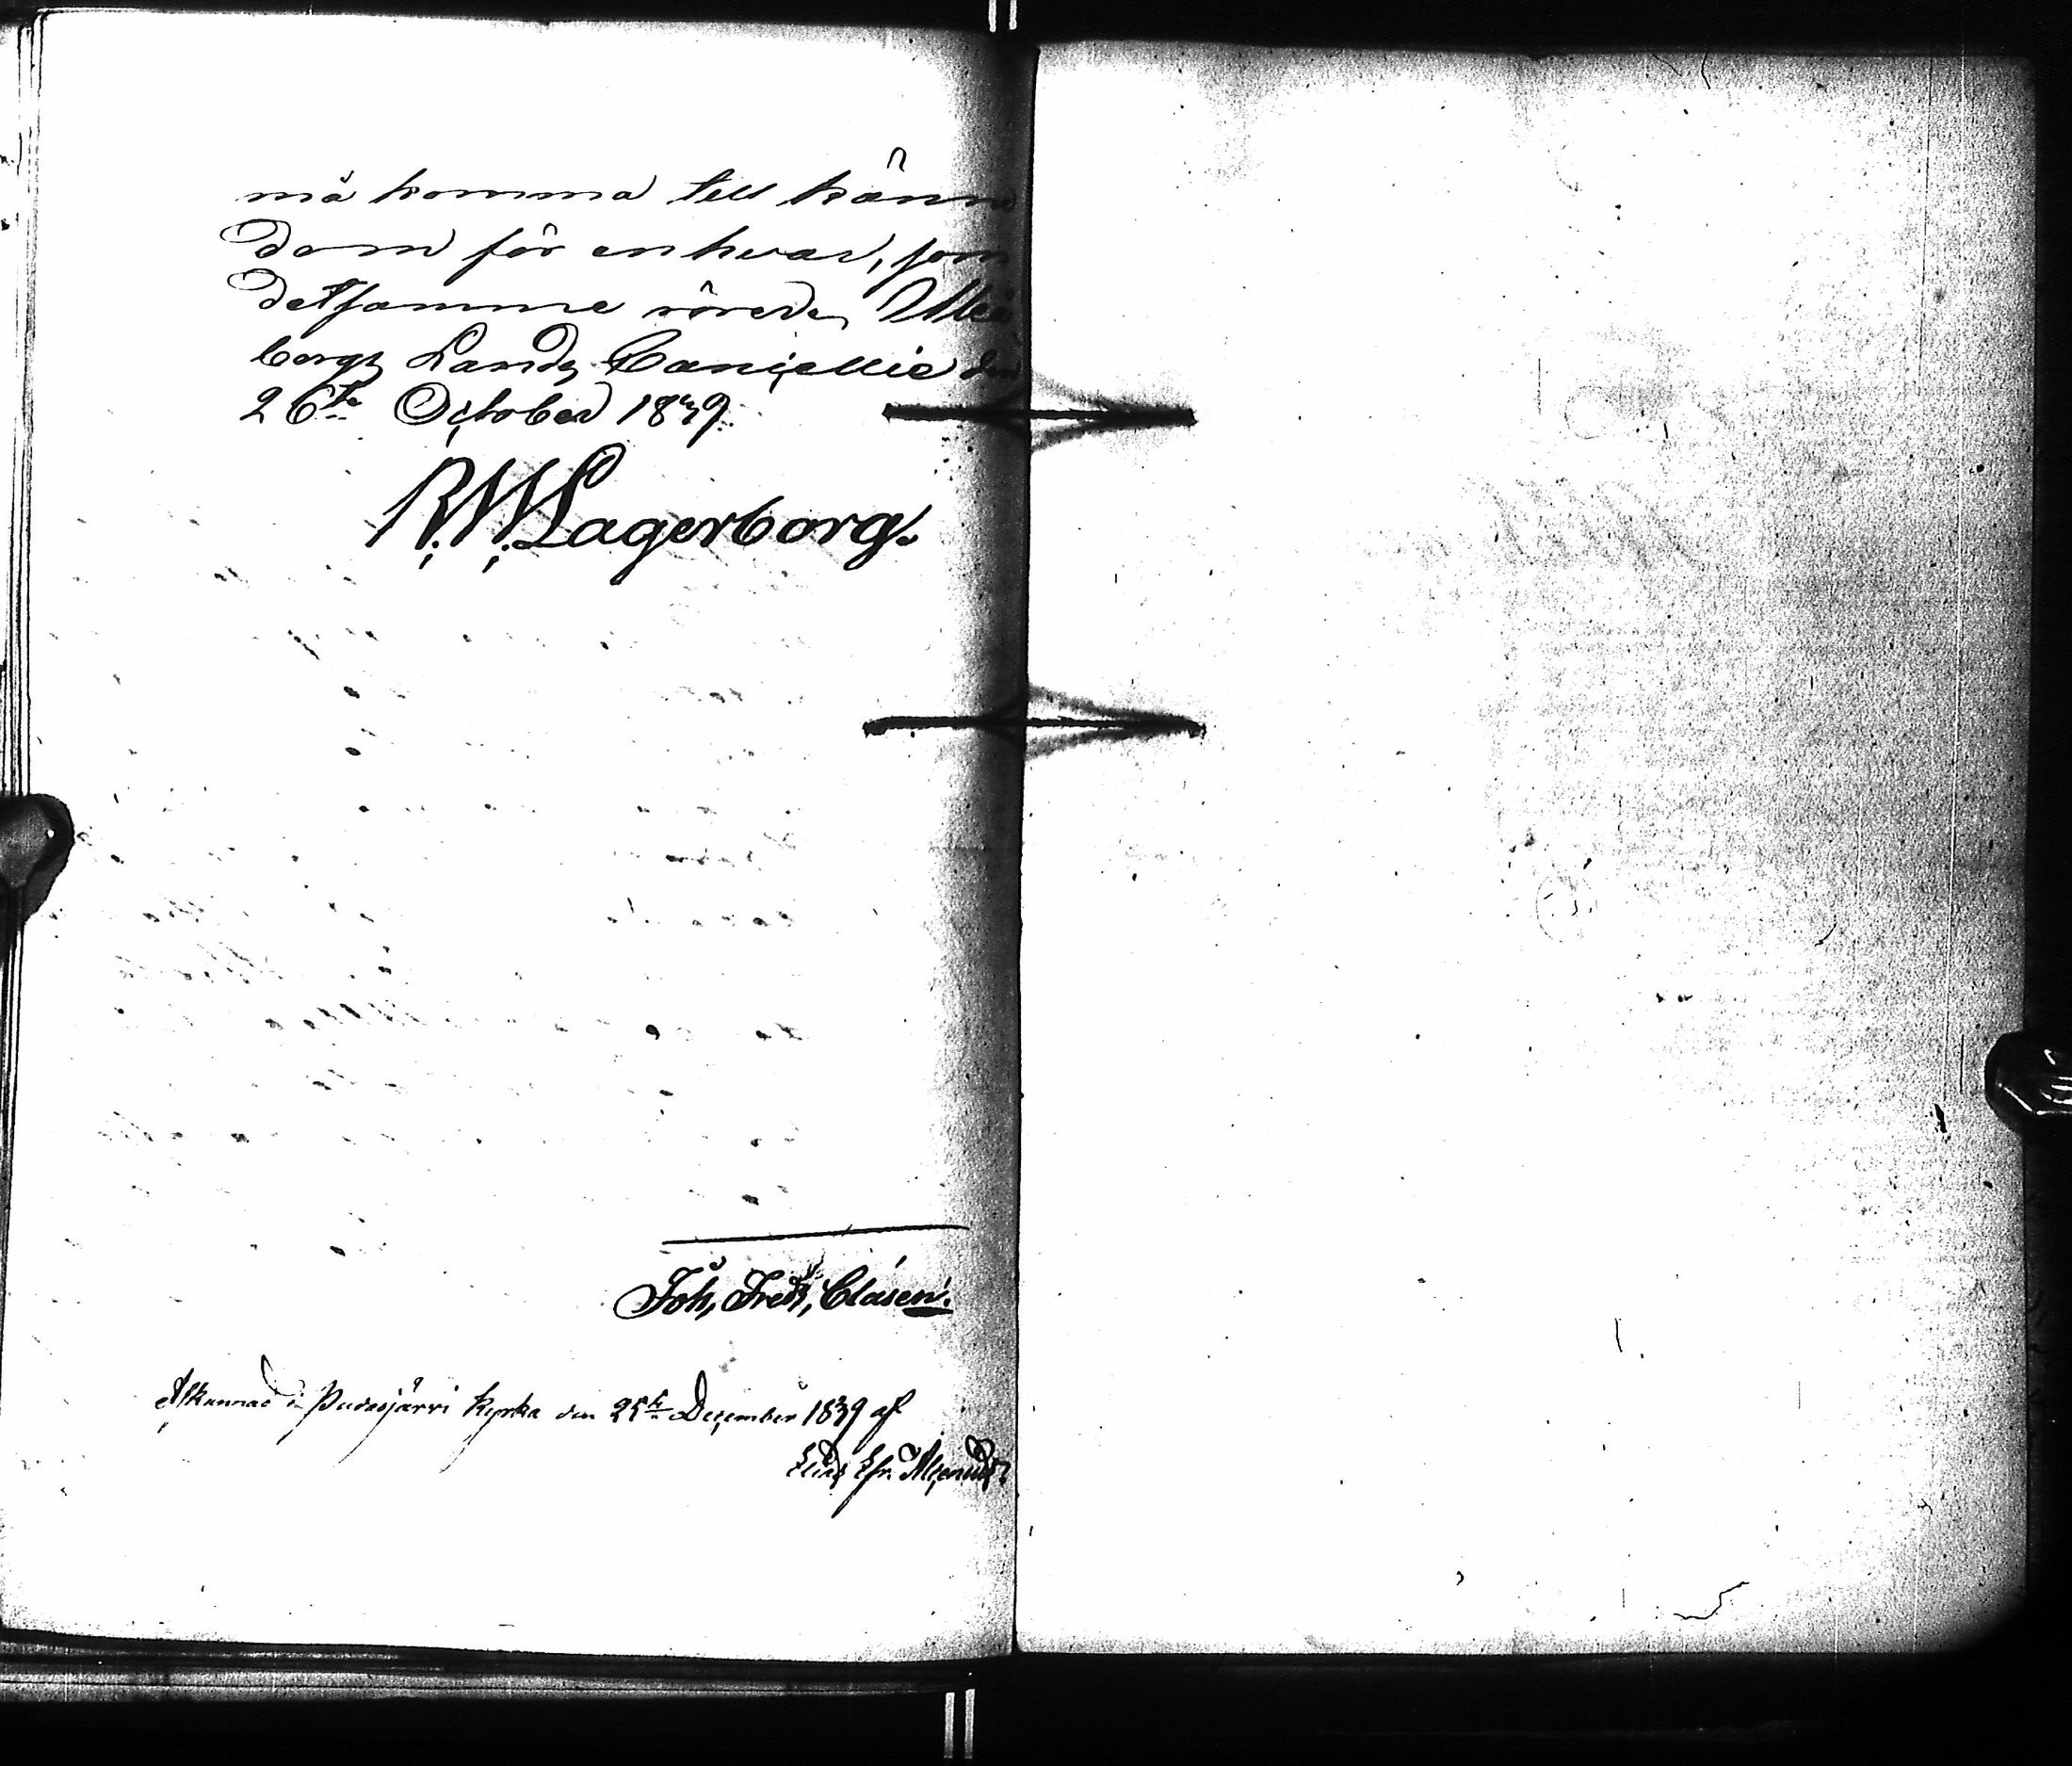 må komma till känne
dom för en hvar, som
detsamma rörer. Uleå
borgs Lands Cancellie den
26te October 1839.
R. W. Lagerborg.
Joh. Fredr. Clasén.
Afkunnad i Pudasjärvi kyrka den 25te December 1839 af
Elias Efr.